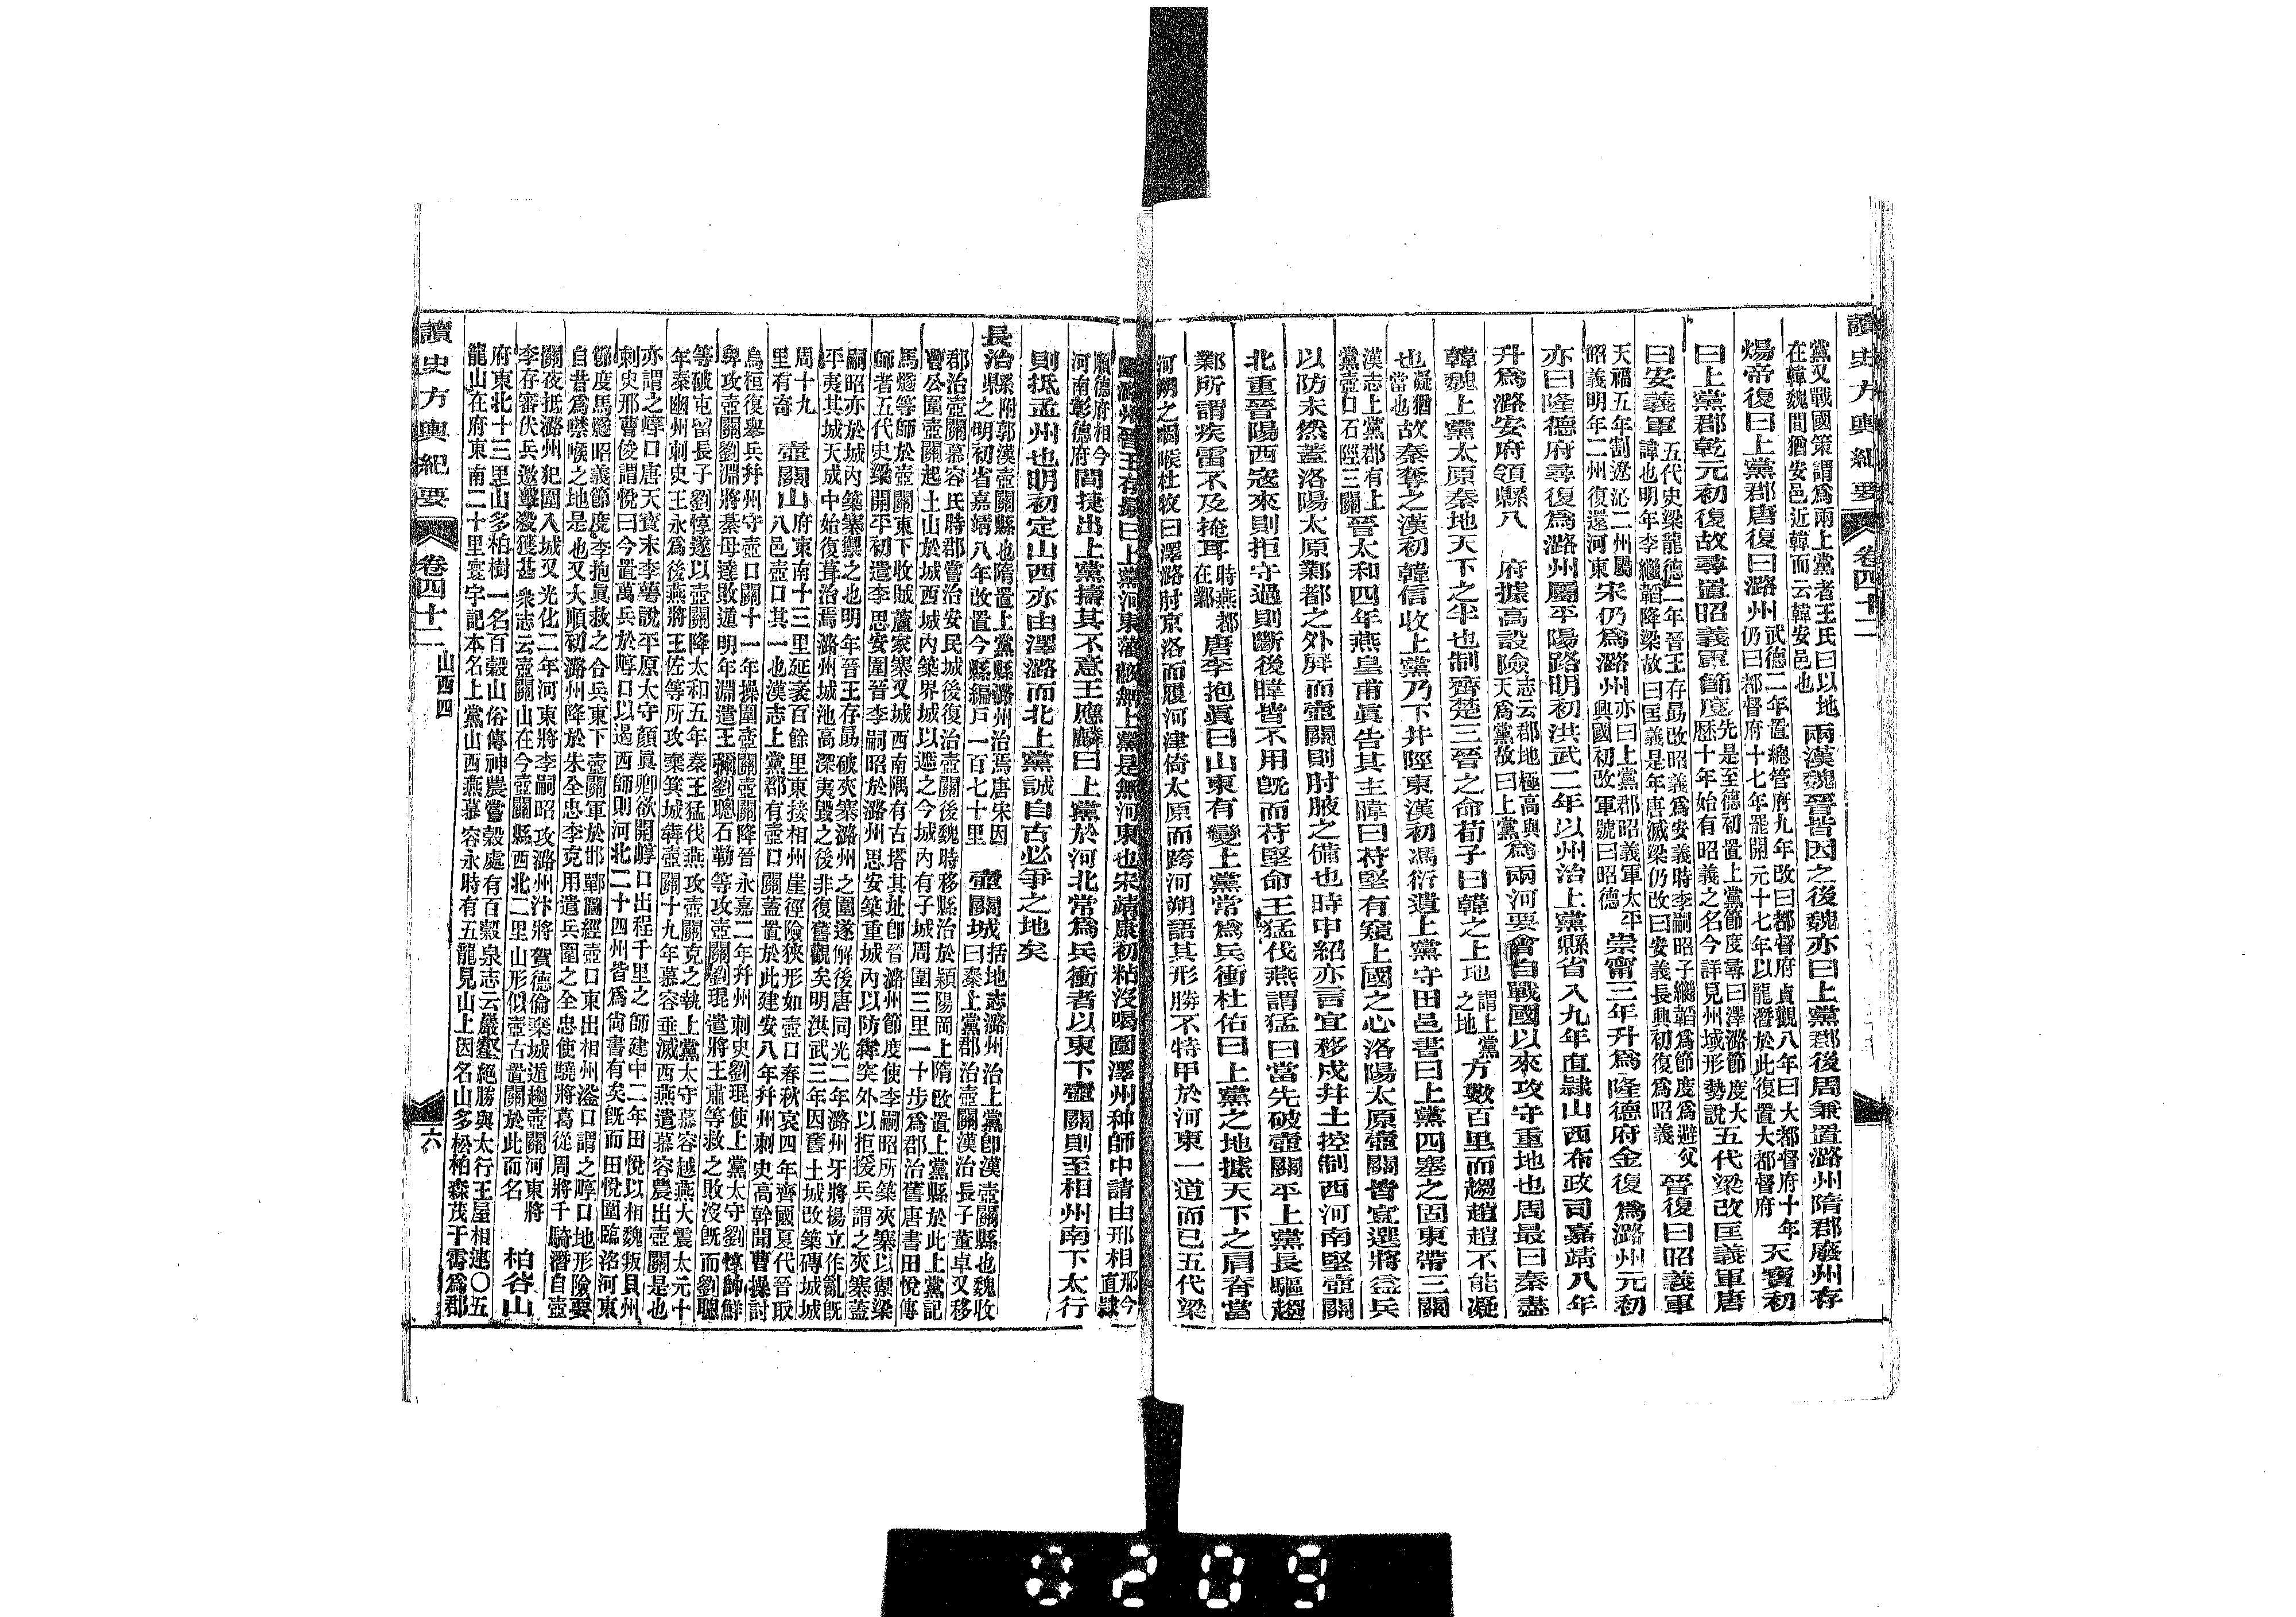 讀史方輿紀要 卷四十二
黨又戰國策謂爲兩上黨者王氏曰以地
在韓魏間猶安邑近韓而云韓安邑也
兩漢魏晉皆因之後魏亦曰上黨郡後周兼置潞州隋郡廢州存
煬帝復曰上黨郡唐復曰潞州
武德二年置總管府九年改曰都督府貞觀八年曰大都督府十年
仍曰都督府十七年罷開元十七年以龍潛於此復置大都督府
天寶初
曰上黨郡乾元初復故尋置昭義軍節度
先是至德初置上黨節度尋曰澤潞節度大
歷十年始有昭義之名今詳見州域形勢說
五代梁改匡義軍唐
曰安義軍
五代史梁龍德二年晉王存勗改昭義爲安義時李嗣昭子繼韜爲節度爲避父
諱也明年李繼韜降梁故曰匡義是年唐滅梁仍改曰安義長興初復爲昭義
晉復曰昭義軍
天福五年割遼沁二州屬
昭義明年二州復還河東
宋仍爲潞州
亦曰上黨郡昭義軍太平
興國初改軍號曰昭德
崇甯三年升爲隆德府金復爲潞州元初
亦曰隆德府尋復爲潞州屬平陽路明初洪武二年以州治上黨縣省入九年直隸山西布政司嘉靖八年
升爲潞安府領縣八 府據高設險
志云郡地極高與
天爲黨故曰上黨
爲兩河要會自戰國以來攻守重地也周最曰秦盡
韓魏上黨太原秦地天下之半也制齊楚三晉之命荀子曰韓之上地
謂上黨
之地
方數百里而趨趙趙不能凝
也
凝猶
當也
故秦奪之漢初韓信收上黨乃下井陘東漢初馮衍遺上黨守田邑書曰上黨四塞之固東帶三關
漢志上黨郡有上
黨壺口石陘三關
晉太和四年燕皇甫眞告其主暐曰苻堅有窺上國之心洛陽太原壺關皆宜選將益兵
以防未然蓋洛陽太原鄴都之外屏而壺關則肘腋之備也時申紹亦言宜移戍井土控制西河南堅壺關
北重晉陽西寇來則拒守過則斷後暐皆不用旣而苻堅命王猛伐燕謂猛曰當先破壺關平上黨長驅趨
鄴所謂疾雷不及掩耳
時燕都
在鄴
唐李抱眞曰山東有變上黨常爲兵衝杜佑曰上黨之地據天下之肩脊當
河朔之咽喉杜牧曰澤潞肘京洛而履河津倚太原而跨河朔語其形勝不特甲於河東一道而已五代梁
圍潞州晉王存勗曰上黨河東藩蔽無上黨是無河東也宋靖康初粘沒喝圍澤州种師中請由邢相
邢今直隸
順德府相今
河南彰德府
間捷出上黨擣其不意王應麟曰上黨於河北常爲兵衝者以東下壺關則至相州南下太行
則抵孟州也明初定山西亦由澤潞而北上黨誠自古必爭之地矣
長治縣
附郭漢壺關縣也隋置上黨縣潞州治焉唐宋因
之明初省嘉靖八年改置今縣編戶一百七十里
壺關城
括地志潞州治上黨卽漢壺關縣也魏收
曰秦上黨郡治壺關漢治長子董卓又移
郡治壺關慕容氏時郡嘗治安民城後復治壺關後魏時移縣治於潁陽岡上隋改置上黨縣於此上黨記
曹公圍壺關起土山於城西城內築界城以遮之今城內有子城周圍三里一十步爲郡治舊唐書田悅傳
馬燧等師於壺關東下收賊蘆家寨又城西南隅有古塔其址卽晉潞州節度使李嗣昭所築夾寨以禦梁
師者五代史梁開平初遣李思安圍晉李嗣昭於潞州思安築重城內以防犇突外以拒援兵謂之夾寨蓋
嗣昭亦於城內築寨禦之也明年晉王存勗破夾寨潞州之圍遂解後唐同光二年潞州牙將楊立作亂旣
平夷其城天成中始復葺治焉潞州城池高深夷毀之後非復舊觀矣明洪武三年因舊土城改築磚城城
周十九
里有奇
壺關山
府東南十三里延袤百餘里東接相州崖徑險狹形如壺口春秋哀四年齊國夏代晉取
八邑壺口其一也漢志上黨郡有壺口關蓋置於此建安八年幷州刺史高幹聞曹操討
烏桓復舉兵幷州守壺口關十一年操圍壺關壺關降晉永嘉二年幷州刺史劉琨使上黨太守劉惇帥鮮
卑攻壺關劉淵將綦毋達敗遁明年淵遣王彌劉聰石勒等攻壺關劉琨遣將王肅等救之敗沒旣而劉聰
等破屯留長子劉惇遂以壺關降太和五年秦王猛伐燕攻壺關克之執上黨太守慕容越燕大震太元十
年秦幽州刺史王永爲後燕將王佐等所攻棄箕城犇壺關十九年慕容垂滅西燕遣慕容農出壺關是也
亦謂之崞口唐天寶末李萼說平原太守顏眞卿欲開崞口出程千里之師建中二年田悅以相魏叛貝州
刺史邢曹俊謂悅曰今置萬兵於崞口以遏西師則河北二十四州皆爲尙書有矣旣而田悅圍臨洺河東
節度馬燧昭義節度李抱眞救之合兵東下壺關軍於邯鄲圖經壺口東出相州滏口謂之崞口地形險要
自昔爲噤喉之地是也又大順初潞州降於朱全忠李克用遣兵圍之全忠使驍將葛從周將千騎潛自壺
關夜抵潞州犯圍入城又光化二年河東將李嗣昭攻潞州汴將賀德倫棄城遁趨壺關河東將
李存審伏兵邀擊殺獲甚衆志云壺關山在今壺關縣西北二里山形似壺古置關於此而名
柏谷山
府東北十三里山多柏樹一名百穀山俗傳神農嘗穀處有百穀泉志云巖壑絕勝與太行王屋相連〇五
龍山在府東南二十里寰宇記本名上黨山西燕慕容永時有五龍見山上因名山多松柏森茂干霄爲郡
讀史方輿紀要 卷四十二 山西四 六
0209